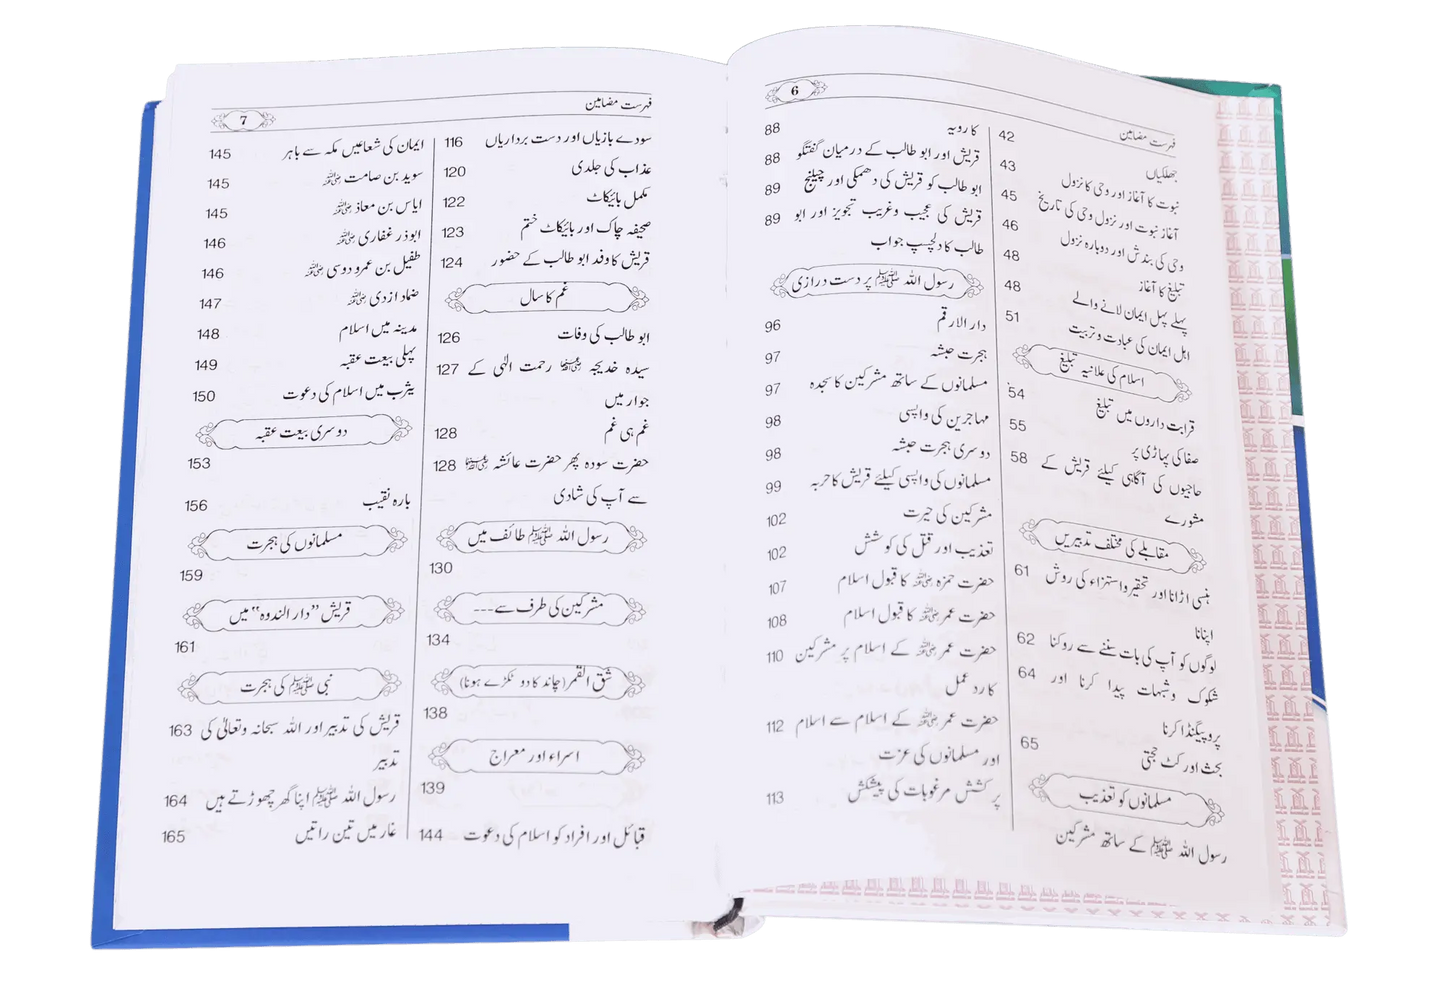 6
فہرست مضامین
جھلکیاں 42
نبوت کا آغاز اور وحی کا نزول 43
آغاز نبوت اور نزول وحی کی تاریخ 45
وحی کی بندش اور دوبارہ نزول 46
تبلیغ کا آغاز 48
پہلے پہل ایمان لانے والے 48
اہل ایمان کی عبادت و تربیت 51
اسلام کی علانیہ تبلیغ
قرابت داروں میں تبلیغ 54
صفا کی پہاڑی پر 55
حاجیوں کی آگاہی کیلئے قریش کے 58
مشورے
مقابلے کی مختلف تدبیریں
ہنسی اڑانا اور تحقیر و استہزاء کی روش 61
اپنانا
لوگوں کو آپ کی بات سننے سے روکنا 62
شکوک و شبہات پیدا کرنا اور 64
پروپیگنڈا کرنا
بحث اور کٹ حجتی 65
مسلمانوں کو تعذیب
رسول اللہ ﷺ کے ساتھ مشرکین
کا رویہ 88
قریش اور ابو طالب کے درمیان گفتگو 88
ابو طالب کو قریش کی دھمکی اور چیلنج 89
قریش کی عجیب وغریب تجویز اور ابو 89
طالب کا دلچسپ جواب
رسول اللہ ﷺ پر دست درازی
دار الارقم 96
ہجرت حبشہ 97
مسلمانوں کے ساتھ مشرکین کا سجدہ 97
مہاجرین کی واپسی 98
دوسری ہجرت حبشہ 98
مسلمانوں کی واپسی کیلئے قریش کا حربہ 99
مشرکین کی حیرت 102
تعذیب اور قتل کی کوشش 102
حضرت حمزہ رضی اللہ عنہ کا قبول اسلام 107
حضرت عمر رضی اللہ عنہ کا قبول اسلام 108
حضرت عمر رضی اللہ عنہ کے اسلام پر مشرکین 110
کا رد عمل
حضرت عمر رضی اللہ عنہ کے اسلام سے اسلام 112
اور مسلمانوں کی عزت
پر کشش مرغوبات کی پیشکش 113
7
فہرست مضامین
سودے بازیاں اور دست برداریاں 116
عذاب کی جلدی 120
مکمل بائیکاٹ 122
صحیفہ چاک اور بائیکاٹ ختم 123
قریش کا وفد ابو طالب کے حضور 124
غم کا سال
ابو طالب کی وفات 126
سیدہ خدیجہ رضی اللہ عنہا رحمت الٰہی کے 127
جوار میں
غم ہی غم 128
حضرت سودہ پھر حضرت عائشہ رضی اللہ عنہا 128
سے آپ کی شادی
رسول اللہ ﷺ طائف میں
130
مشرکین کی طرف سے---
134
شق القمر (چاند کا دو ٹکڑے ہونا)
138
اسراء اور معراج
139
قبائل اور افراد کو اسلام کی دعوت 144
ایمان کی شعاعیں مکہ سے باہر 145
سوید بن صامت رضی اللہ عنہ 145
ایاس بن معاذ رضی اللہ عنہ 145
ابوذر غفاری رضی اللہ عنہ 146
طفیل بن عمرو دوسی رضی اللہ عنہ 146
ضماد ازدی رضی اللہ عنہ 147
مدینہ میں اسلام 148
پہلی بیعت عقبہ 149
یثرب میں اسلام کی دعوت 150
دوسری بیعت عقبہ
153
بارہ نقیب 156
مسلمانوں کی ہجرت
159
قریش ”دار الندوہ“ میں
161
نبی ﷺ کی ہجرت
قریش کی تدبیر اور اللہ سبحانہ وتعالیٰ کی 163
تدبیر
رسول اللہ ﷺ اپنا گھر چھوڑتے ہیں 164
غار میں تین راتیں 165